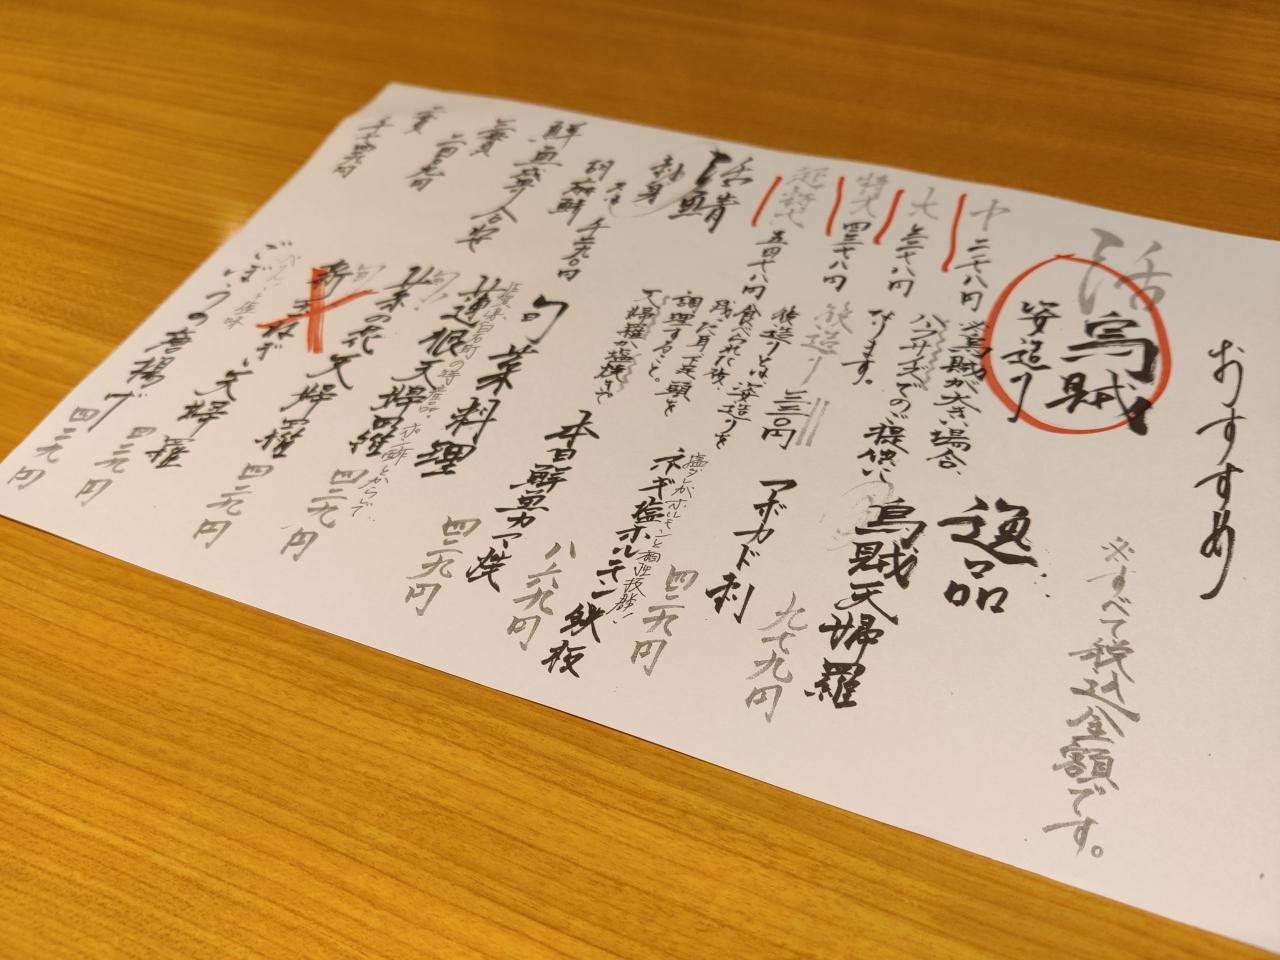 おすすめ
※すべて税込金額です。
活烏賊
姿造り
中 二千八円
大 三千八円
特大 四千八円
超特大 五千八円
※烏賊が大きい場合、
ハーフサイズでのご提供に
なります。
後造り 三三〇円
後造りとは姿造りを
食べられた後、
残った耳、下足、頭を
調理すること。
天婦羅か塩焼き
活鯖
刺身
胡麻鯖
鮮魚盛り合せ
逸品
烏賊天婦羅
九七九円
アボカド刺
四二九円
ネギ塩ホルモン鉄板
八六九円
本日鮮魚カマ焼
四二九円
旬菜料理
蓮根天婦羅
四二九円
旬!
菜の花天婦羅
四二九円
新玉ねぎ天婦羅
四二九円
ごぼうの唐揚げ
四二九円